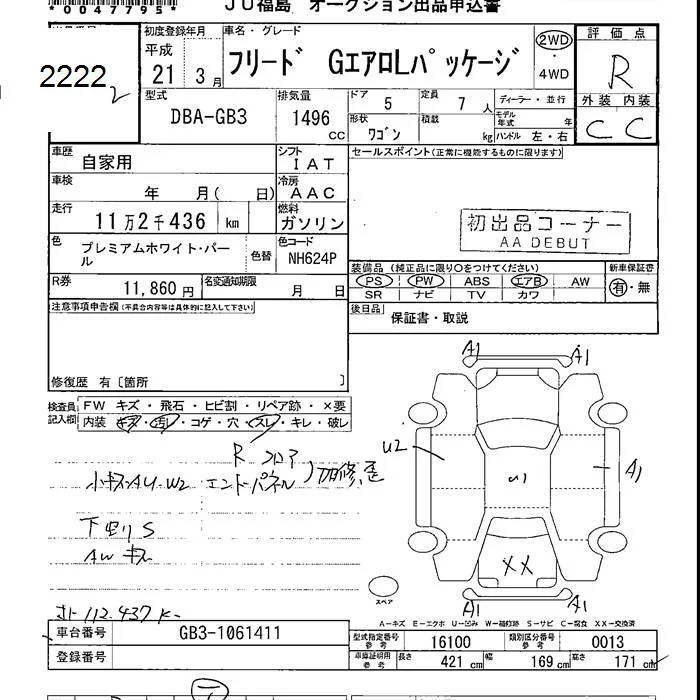 *0047795*
JU福島 オークション出品申込書
2222
初度登録年月 平成 21 3月
車名・グレード フリード GエアロLパッケージ
2WD・4WD
評価点 R
外装 内装 C C
型式 DBA-GB3
排気量 1496 CC
ドア 5
定員 7人
形状 ワゴン
積載 kg
ディーラー・並行
モデル年式 年
ハンドル 左・右
車歴 自家用
シフト IAT
セールスポイント(正常に機能するものに限ります)
車検 年 月( 日)
冷房 AAC
走行 11万2千436 km
燃料 ガソリン
初出品コーナー
AA DEBUT
色 プレミアムホワイト・パール
色替
色コード NH624P
装備品(純正品に限り○をつけてください)
新車保証書 有・無
PS PW ABS エアB AW
SR ナビ TV カワ
R券 11,860円
名変通知期限 月 日
後日品 保証書・取説
注意事項申告欄(不具合内容等は具体的に記入して下さい)
修復歴 有〔箇所 〕
検査員記入欄
FW キズ・飛石・ヒビ割・リペア跡・×要
内装 キズ・汚れ・コゲ・穴・スレ・キレ・破レ
R フロア
小キズ・AU・W2 エンドパネル
下廻りS
AW キズ
112.437K
A1 A1
U2
U1
A1
XX
A1 A1
スペア
A-キズ E-エクボ U-凹み W-補修跡 S-サビ C-腐食 XX-交換済
車台番号 GB3-1061411
登録番号
型式指定番号参考 16100
類別区分番号参考 0013
車庫証明用参考 長さ 421cm 幅 169cm 高さ 171cm